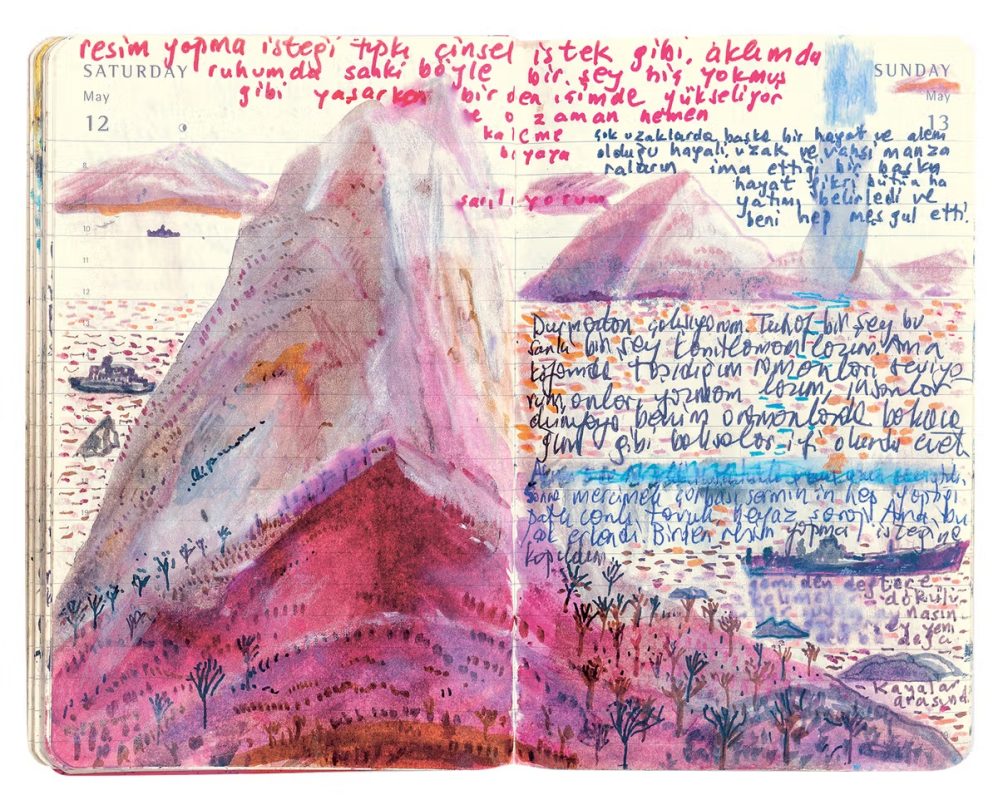 resim yapma isteği tıpkı cinsel istek gibi. aklımda
ruhumda sanki böyle bir şey hiç yokmuş
gibi yaşarken birden içimde yükseliyor
ve o zaman hemen
kaleme
boyaya
sarılıyorum
SATURDAY
May
12
8
10
11
12
SUNDAY
May
13
çok uzaklarda başka bir hayat ve alem
olduğu hayali, uzak ve vahşi manza
raların ima ettiği bir başka
hayat fikri bütün ha
yatımı belirledi ve
beni hep meşgul etti.
Durmadan çalışıyorum. Tuhaf bir şey bu
sanki bir şey kanıtlamam lazım. Ama
kafamda taşıdığım romanları seviyo
rum, onları yazmam lazım, insanlar
dünyaya benim romanlarda bakaca
ğım gibi baksalar iyi olurdu evet
Sonra mercimek çorbası
tavuk, beyaz şarap
Birden resim yapma isteğine
kapıldım
gemiden deftere
kelimeler dökülü
Kayalar
arasında